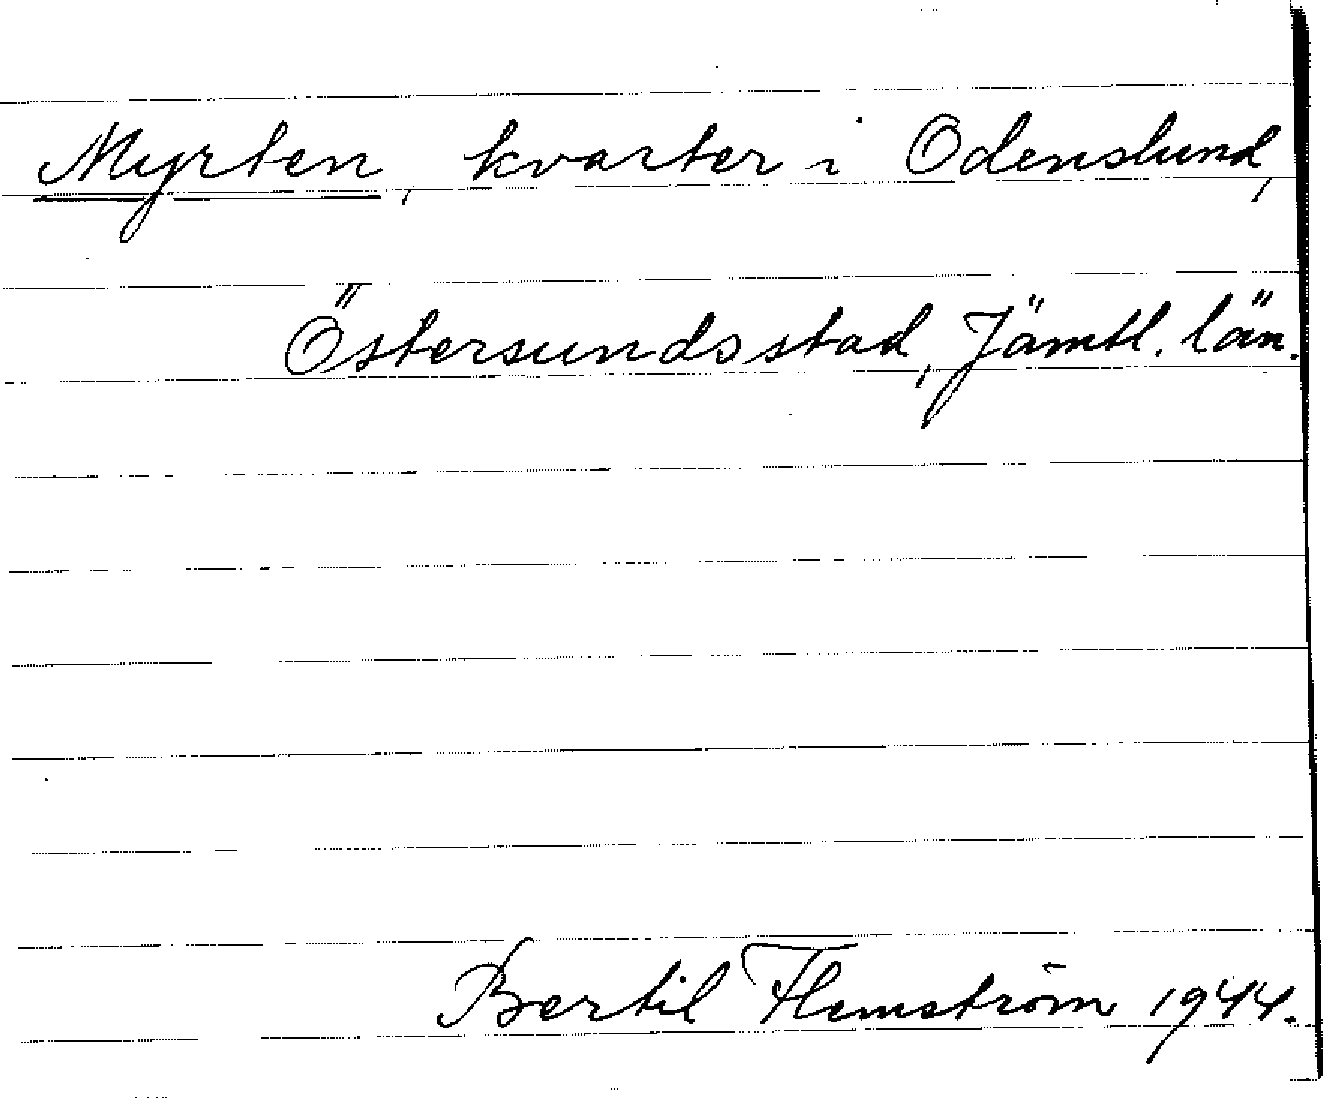 Myrten, kvarter i Odenslund,
Östersunds stad, Jämtl. län.
Bertil Flemström 1944.